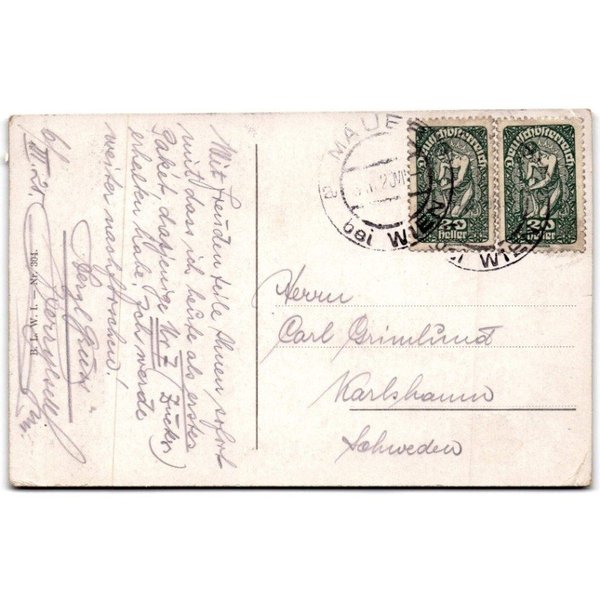 Mit Freuden teile Ihnen sofort
mit, dass ich heute als erstes
Paket, dasjenige No 7 (Zucker)
erhalten habe. Ich werde
weiter nachforschen!
Herzl. Grüße
6/
B. L. W. I. — Nr. 304.
MAUER
bei WIEN
Deutschösterreich
20
Heller
Deutschösterreich
20
Heller
bei WIEN
Herrn
Carl Grimlund
Karlshamn
Schweden